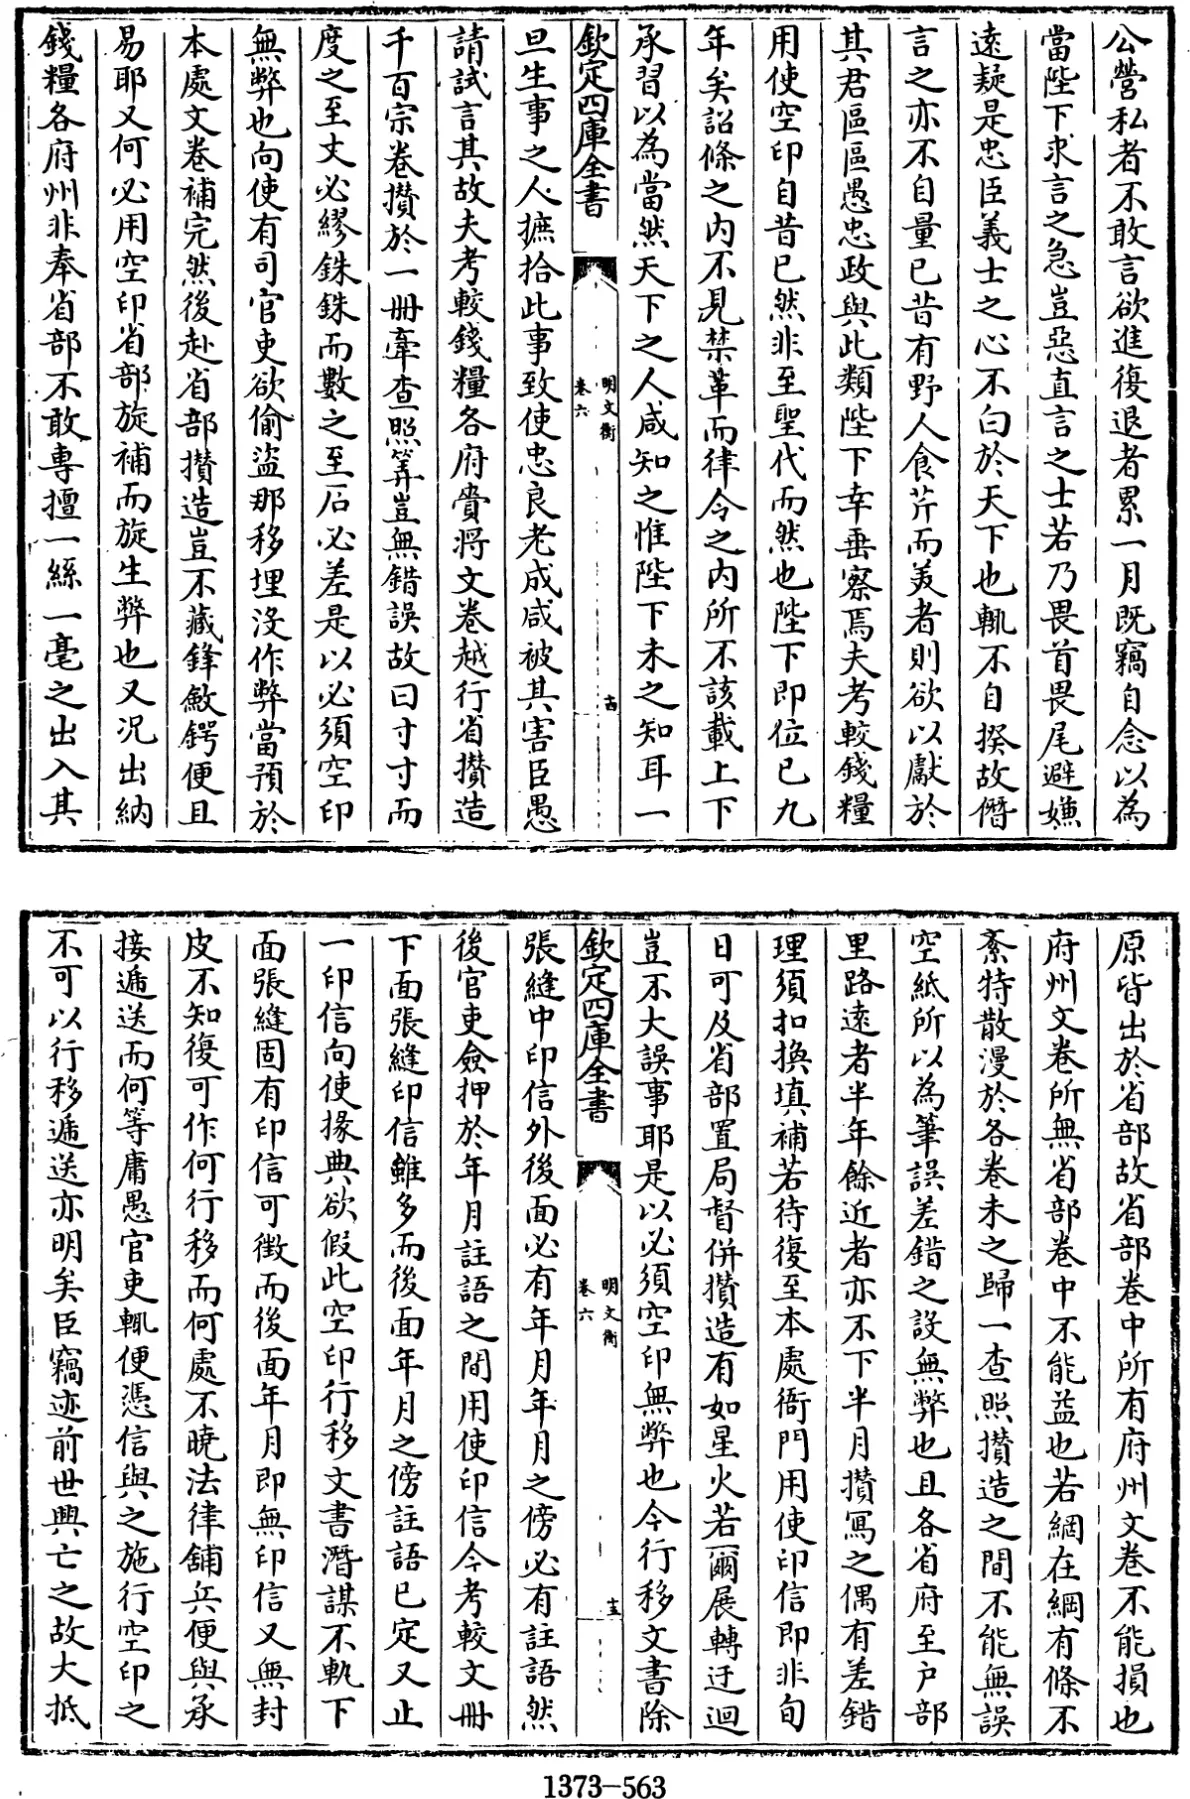 公營私者不敢言欲進復退者累一月既竊自念以為
當陛下求言之急豈惡直言之士若乃畏首畏尾避嫌
遠疑是忠臣義士之心不白於天下也輒不自揆故僭
言之亦不自量已昔有野人食芹而美者則欲以獻於
其君區區愚忠政與此類陛下幸垂察焉夫考較錢糧
用使空印自昔已然非至聖代而然也陛下即位已九
年矣詔條之内不見禁革而律令之内所不該載上下
承習以為當然天下之人咸知之惟陛下未之知耳一
欽定四庫全書
明文衡
卷六
古
旦生事之人摭拾此事致使忠良老成咸被其害臣愚
請試言其故夫考較錢糧各府賫將文卷越行省攢造
千百宗卷攢於一冊牽查照筭豈無錯誤故曰寸寸而
度之至丈必繆銖銖而數之至石必差是以必須空印
無弊也向使有司官吏欲偷盜那移埋沒作弊當預於
本處文卷補完然後赴省部攢造豈不藏鋒斂鍔便且
易耶又何必用空印省部旋補而旋生弊也又況出納
錢糧各府州非奉省部不敢專擅一絲一毫之出入其
原皆出於省部故省部卷中所有府州文卷不能損也
府州文卷所無省部卷中不能益也若綱在綱有條不
紊特散漫於各卷未之歸一查照攢造之間不能無誤
空紙所以為筆誤差錯之設無弊也且各省府至户部
里路遠者半年餘近者亦不下半月攢寫之偶有差錯
理須扣換填補若待復至本處衙門用使印信即非旬
日可及省部置局督併攢造有如星火若爾展轉迂迴
豈不大誤事耶是以必須空印無弊也今行移文書除
欽定四庫全書
明文衡
卷六
十五
張縫中印信外後面必有年月年月之傍必有註語然
後官吏僉押於年月註語之間用使印信今考較文冊
下面張縫印信雖多而後面年月之傍註語已定又止
一印信向使掾典欲假此空印行移文書潛謀不軌下
面張縫固有印信可徴而後面年月即無印信又無封
皮不知復可作何行移而何處不曉法律舖兵便與承
接遞送而何等庸愚官吏輒便憑信與之施行空印之
不可以行移遞送亦明矣臣竊迹前世興亡之故大抵
1373-563